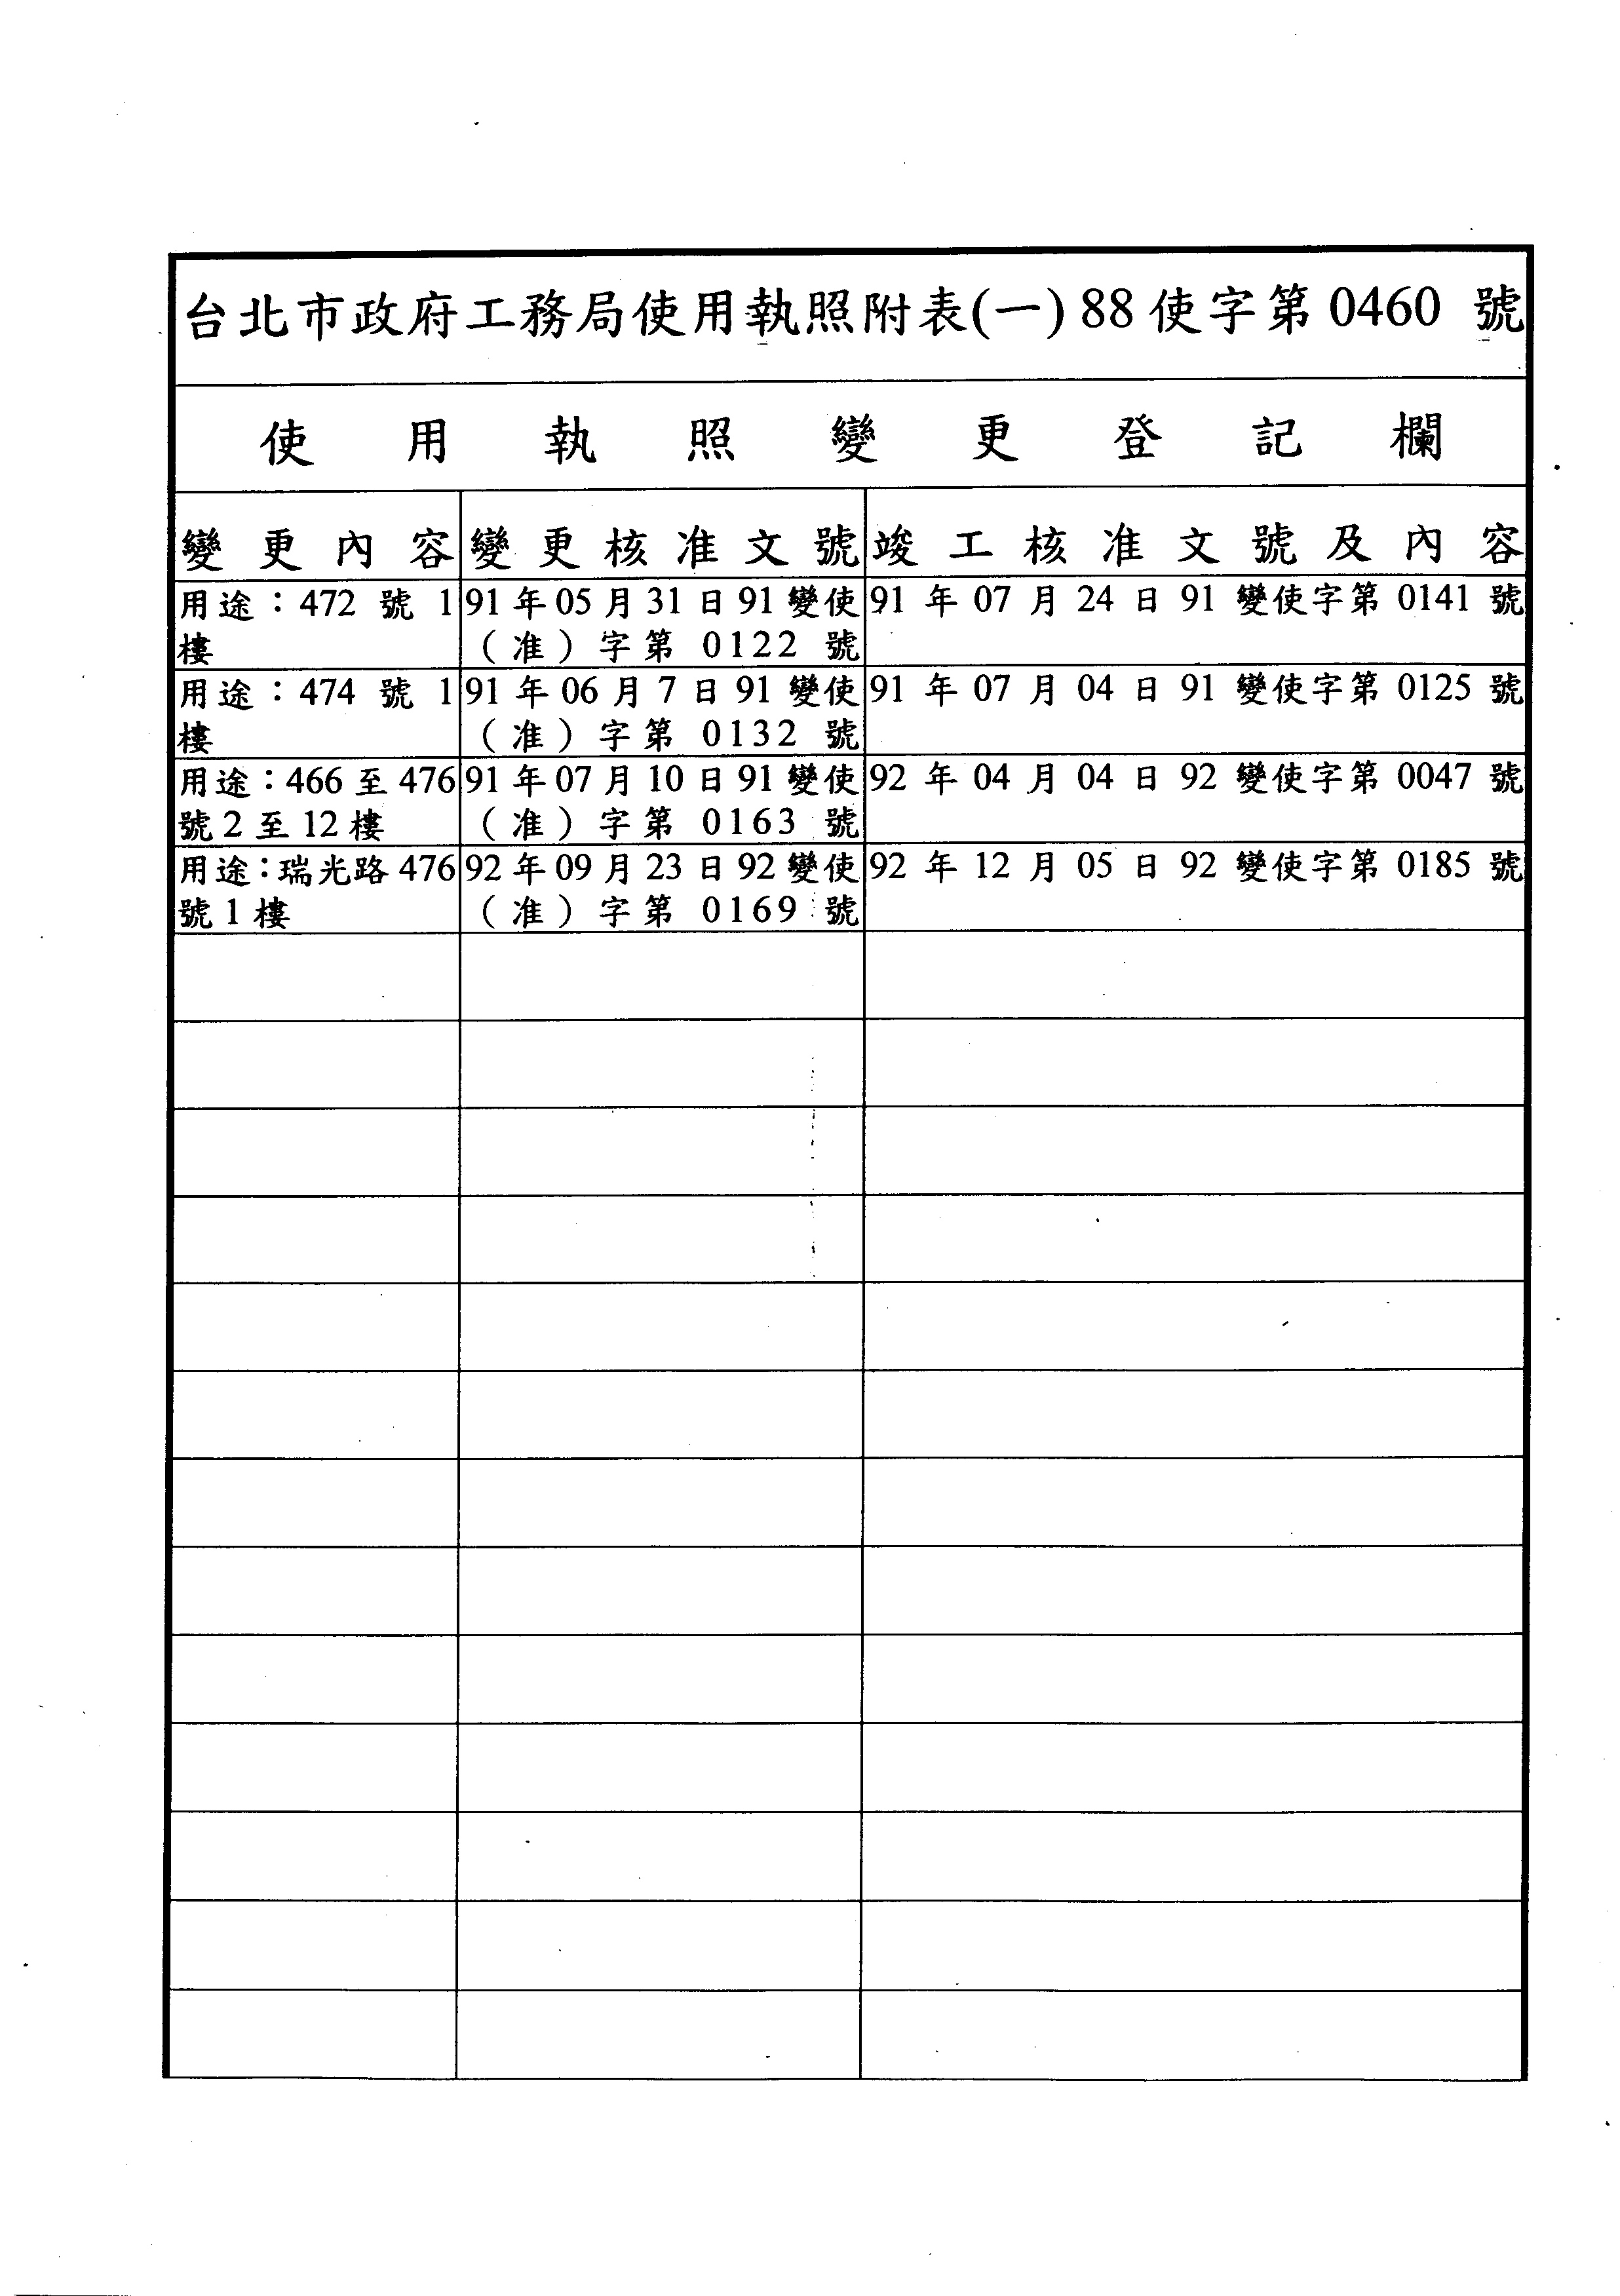 台北市政府工務局使用執照附表(一) 88 使字第 0460 號
使用執照變更登記欄
變更內容 變更核准文號 竣工核准文號及內容
用途：472 號 1 91 年 05 月 31 日 91 變使 91 年 07 月 24 日 91 變使字第 0141 號
樓 （准）字第 0122 號
用途：474 號 1 91 年 06 月 7 日 91 變使 91 年 07 月 04 日 91 變使字第 0125 號
樓 （准）字第 0132 號
用途：466 至 476 91 年 07 月 10 日 91 變使 92 年 04 月 04 日 92 變使字第 0047 號
號 2 至 12 樓 （准）字第 0163 號
用途：瑞光路 476 92 年 09 月 23 日 92 變使 92 年 12 月 05 日 92 變使字第 0185 號
號 1 樓 （准）字第 0169 號